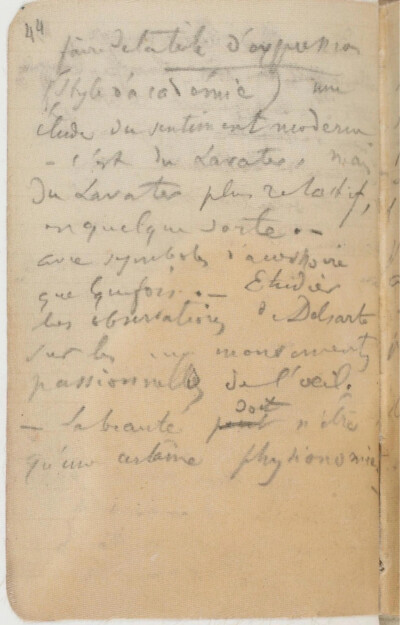 44
faire de la tête d'expression
(style d'académie) une
étude du sentiment moderne
- c'est du Lavater, mais
du Lavater plus relatif,
en quelque sorte. -
avec symboles d'accessoire
quelquefois. - Etudier
les observations de Delsarte
sur les mouvements
passionnels de l'oeil.
- La beauté peut doit n'être
qu'une certaine physionomie